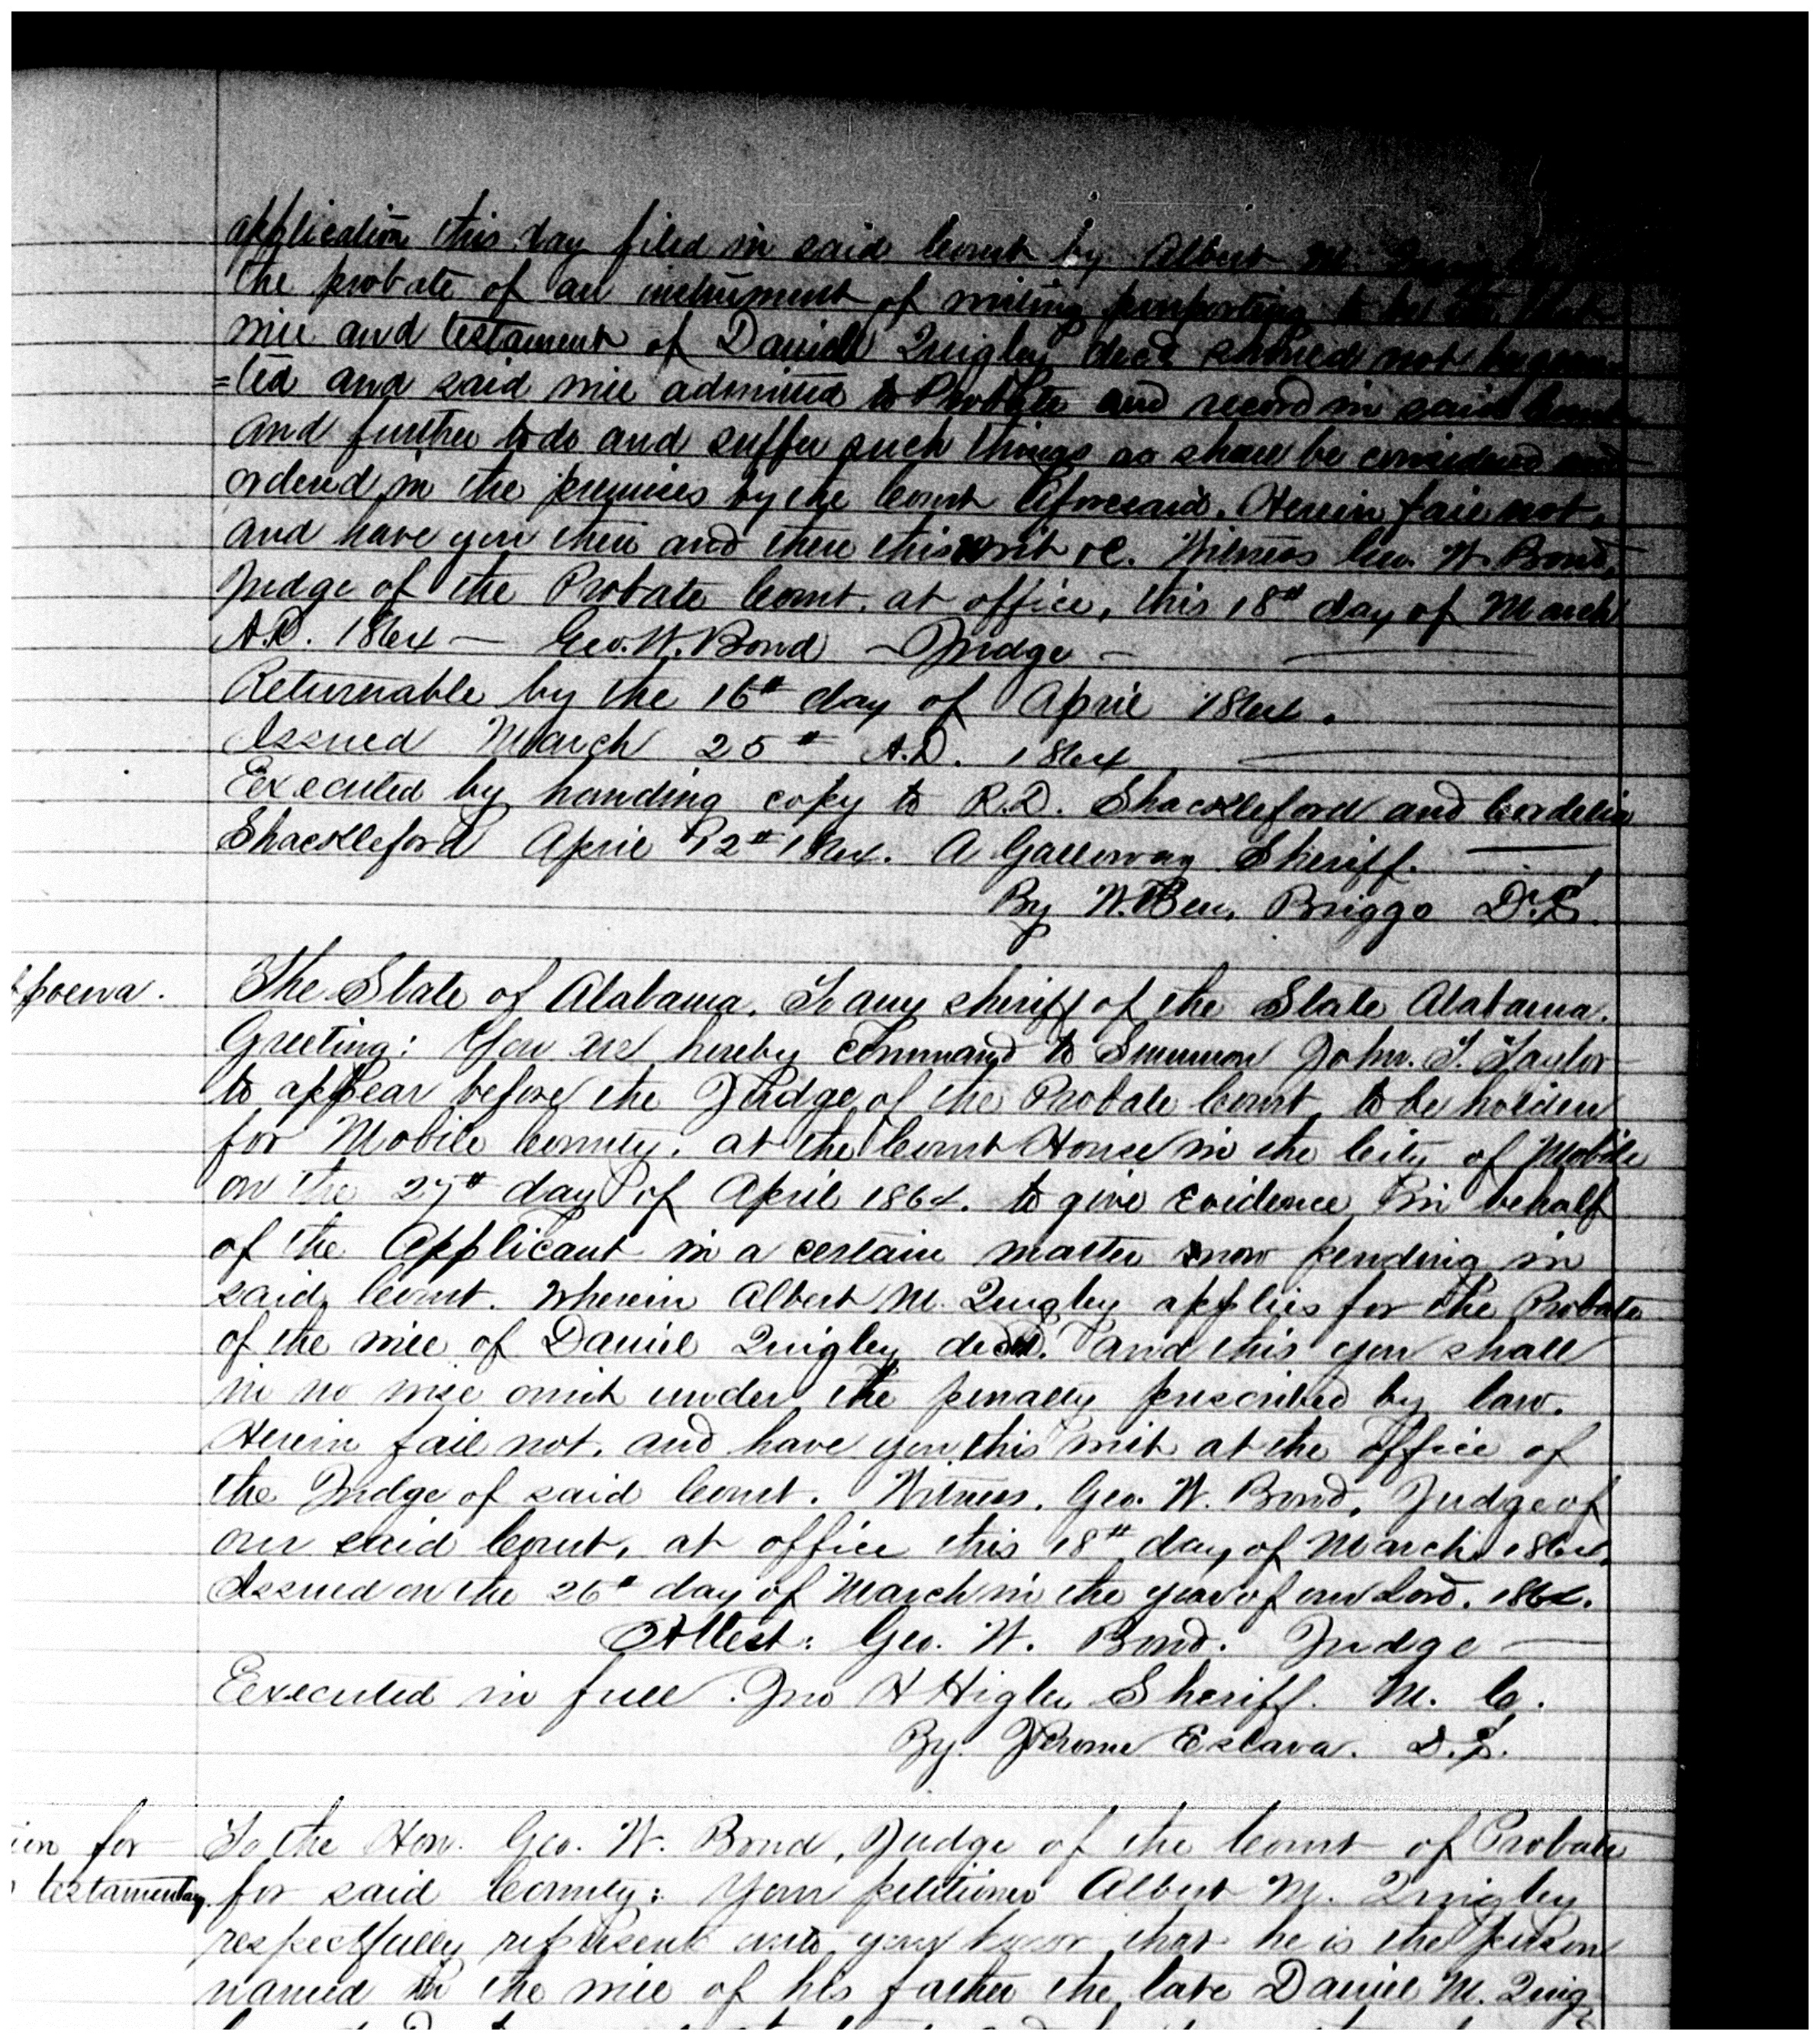 application this day filed in said Court by Albert M. Quigley
the probate of an instrument of writing purporting to be the last
will and testament of Daniel Quigley decd. should not be gran-
=ted and said will admitted to Probate and record in said Court
and further to do and suffer such things as shall be considered and
ordered in the premises by the Court aforesaid. Herein fail not,
and have you then and there this writ &c. Witness Geo. W. Bond,
Judge of the Probate Court, at office, this 18th day of March
A.D. 1864 — Geo. W. Bond — Judge —
Returnable by the 16th day of April 1864.
Issued March 25th A.D. 1864
Executed by handing copy to R.D. Shackleford and Cordelia
Shackleford April 12th 1864. A Galloway Sheriff.
By W. Ben. Briggs D.S.
poena.
The State of Alabama. To any sheriff of the State Alabama.
Greeting: You are hereby command to Summon John. T. Taylor
to appear before the Judge of the Probate Court, to be holden
for Mobile County, at the Court House in the City of Mobile
on the 27th day of April 1864. to give evidence in behalf
of the Applicant in a certain matter now pending in
said Court. Wherein Albert M. Quigley applies for the Probate
of the will of Daniel Quigley decd. and this you shall
in no wise omit under the penalty prescribed by law.
Herein fail not, and have you this writ at the office of
the Judge of said Court. Witness. Geo. W. Bond, Judge of
our said Court, at office this 18th day of March 1864.
Issued on the 26th day of March in the year of our Lord. 1864.
Attest: Geo. W. Bond. Judge —
Executed in full. Jno H Higley Sheriff. M. C.
By. Jerome Eslava. D.S.
for
testamentary.
To the Hon. Geo. W. Bond, Judge of the Court of Probate
for said County: Your petitioner Albert M. Quigley
respectfully represent unto your honor that he is the person
named in the will of his father the late Daniel M. Quig